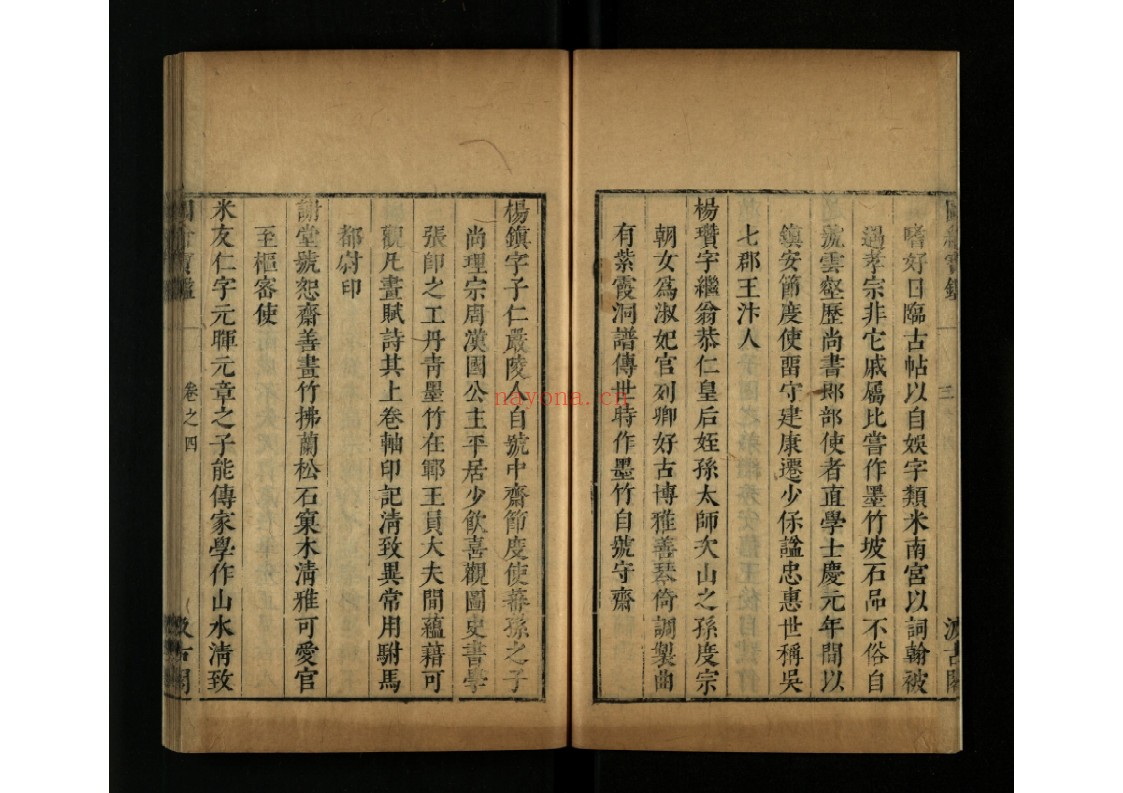 嗜好日臨古帖以自娛字類米南宮以詞翰被
遇孝宗非它戚屬比嘗作墨竹坡石吊不俗自
號雲壑歷尚書郎部使者直學士慶元年間以
鎮安節度使畱守建康遷少保謚忠惠世稱吳
七郡王汴人
楊瓚字繼翁恭仁皇后姪孫太師次山之孫度宗
朝女爲淑妃官列卿好古博雅善琴倚調製曲
有紫霞洞譜傳世時作墨竹自號守齋
楊鎮字子仁嚴陵人自號中齋節度使蕃孫之子
尚理宗周漢國公主平居少飲喜觀圖史書學
張卽之工丹靑墨竹在鄆王員大夫間蘊藉可
觀凡畫賦詩其上卷軸印記清致異常用駙馬
都尉印
謝堂號恕齋善畫竹拂蘭松石窠木清雅可愛官
至樞密使
米友仁字元暉元章之子能傳家學作山水淸致
卷之四
三
nayona.cn